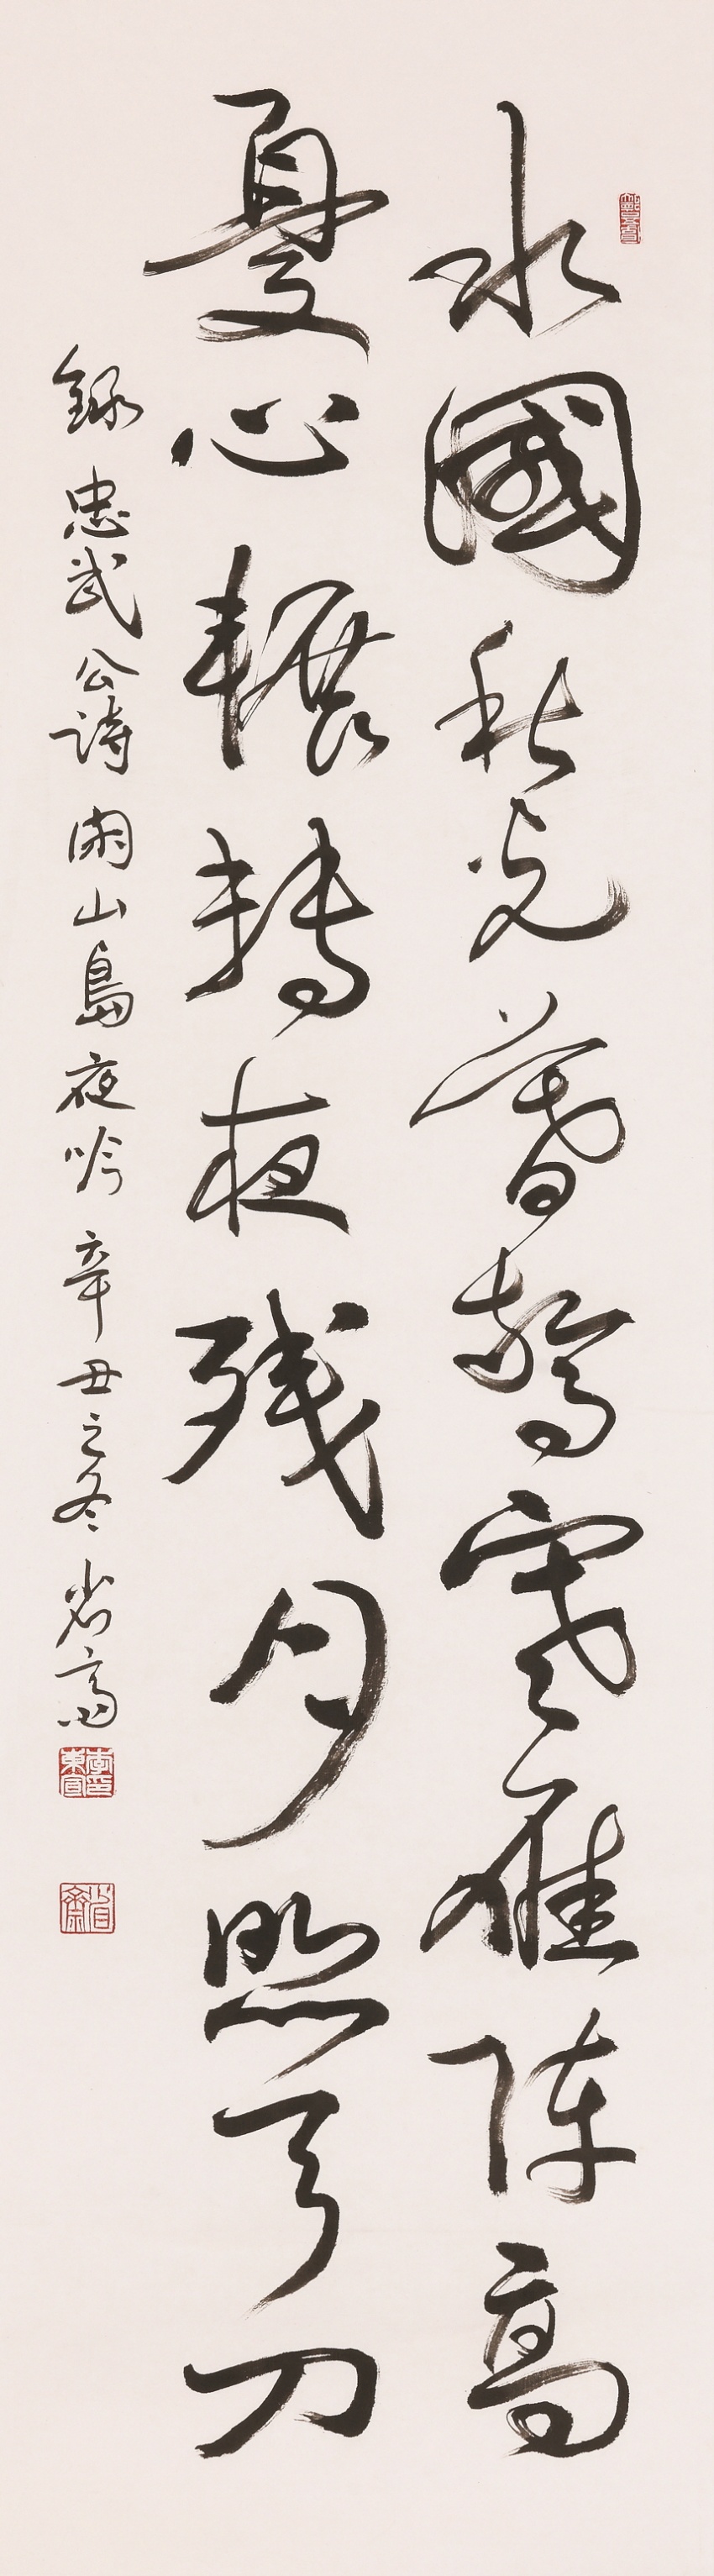 水國秋光暮驚寒雁陣高
憂心輾轉夜殘月照弓刀
錄忠武公詩閑山島夜吟辛丑之冬省齋